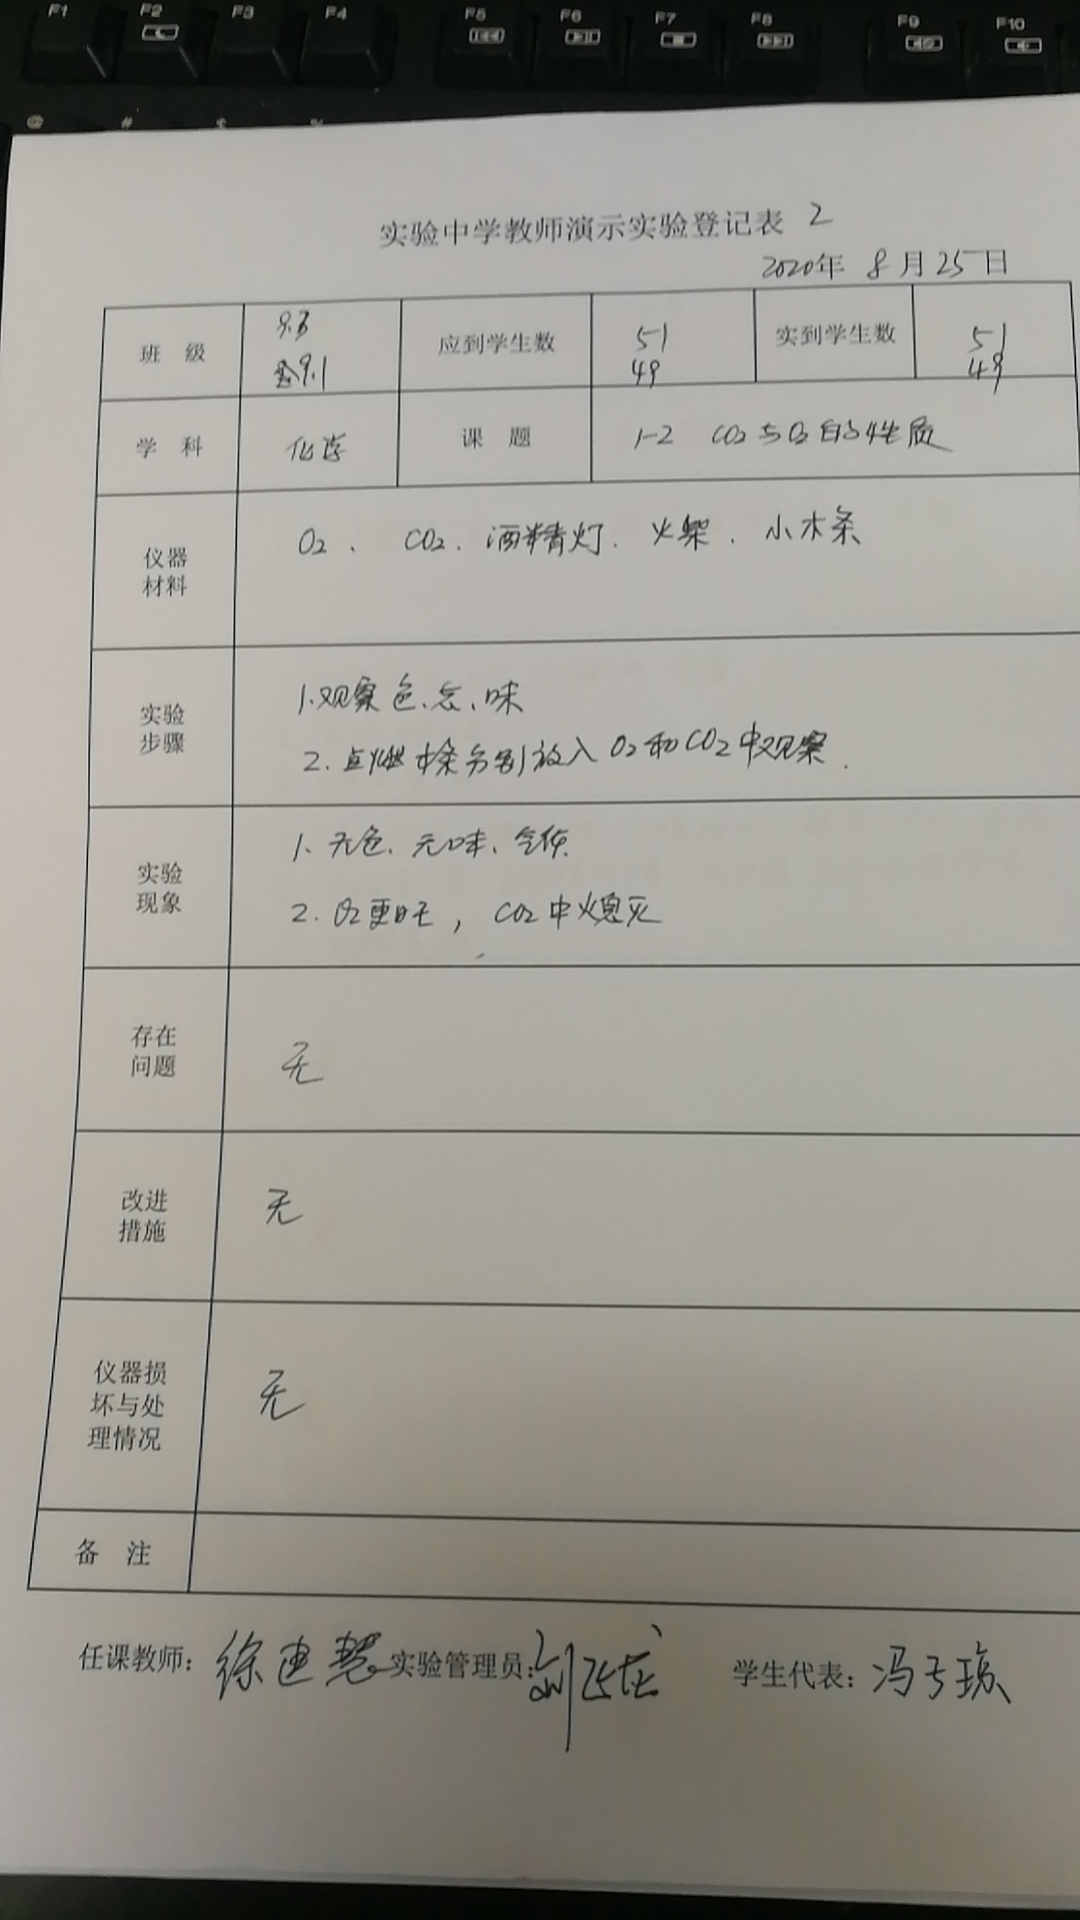 F1 F2 F3 F4 F5 F6 F7 F8 F9 F10
@ # $ %
实验中学教师演示实验登记表 2
2020年 8月25日
班 级 9.3 应到学生数 51 实到学生数 51
9.1 49 49
学 科 化学 课 题 1-2 CO2与O2的性质
仪器
材料
O2、CO2、酒精灯、火柴、小木条
实验
步骤
1.观察色、态、味
2.点燃木条分别放入O2和CO2中观察.
实验
现象
1、无色、无味、气体
2.O2更旺，CO2中熄灭
存在
问题
无
改进
措施
无
仪器损
坏与处
理情况
无
备 注
任课教师：徐迪慧 实验管理员：刘飞龙 学生代表：冯子琼